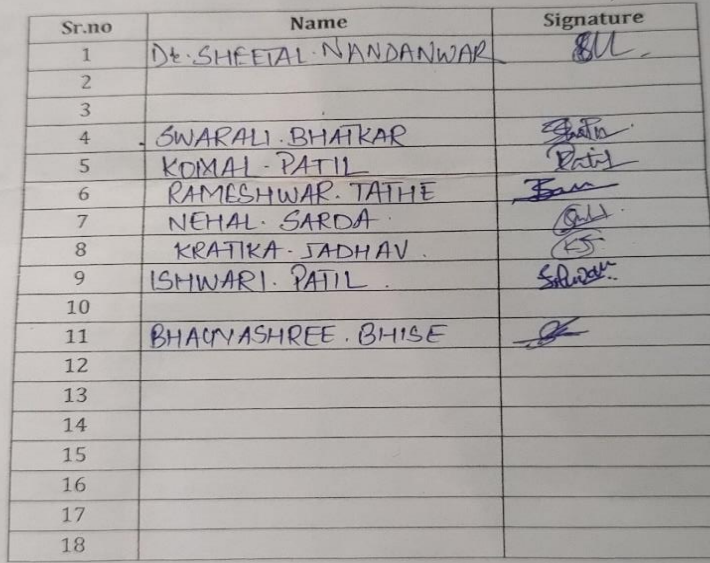 Sr.no Name Signature
1 Dr. SHEETAL. NANDANWAR
2
3
4 SWARALI. BHATKAR
5 KOMAL. PATIL
6 RAMESHWAR. TATHE
7 NEHAL. SARDA.
8 KRATIKA. JADHAV.
9 ISHWARI. PATIL.
10
11 BHAGYASHREE. BHISE
12
13
14
15
16
17
18